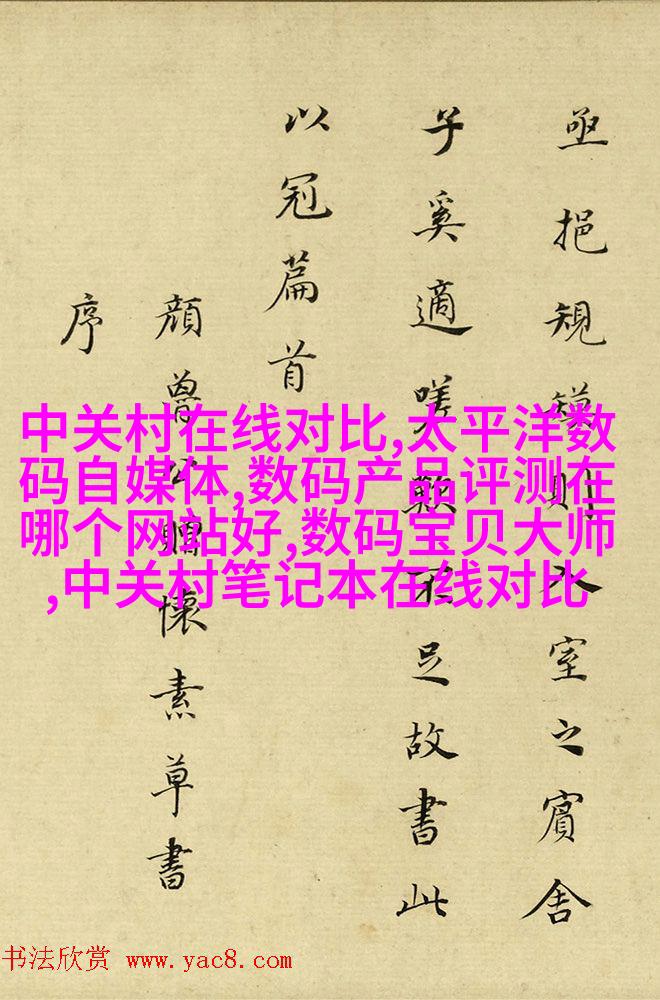 亟挹規模則入室之賓舍
子奚適嗟歎不足故書此
以冠篇首
顔魯公贈懷素草書
序
中关村在线对比,太平洋数
码自媒体,数码产品评测在
哪个网站好,数码宝贝大师
,中关村笔记本在线对比
书法欣赏 www.yac8.com